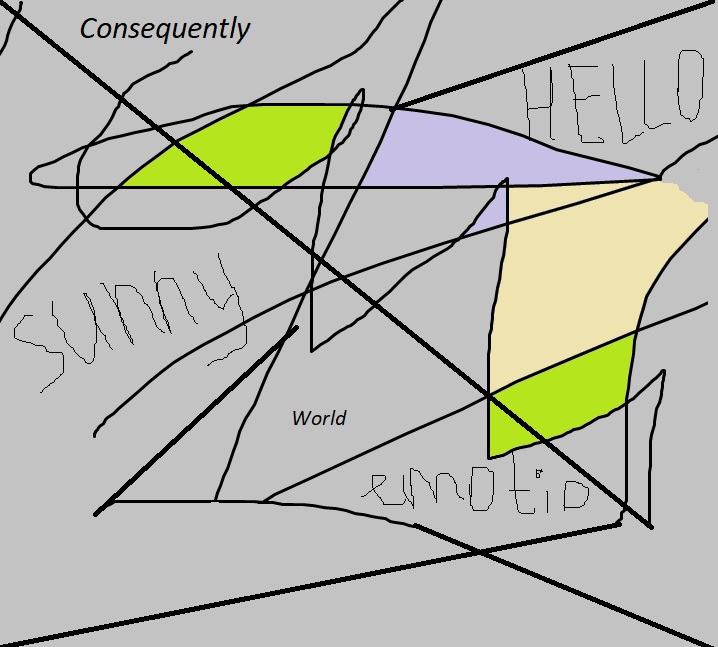 Consequently
HELLO
sunny
World
emotio